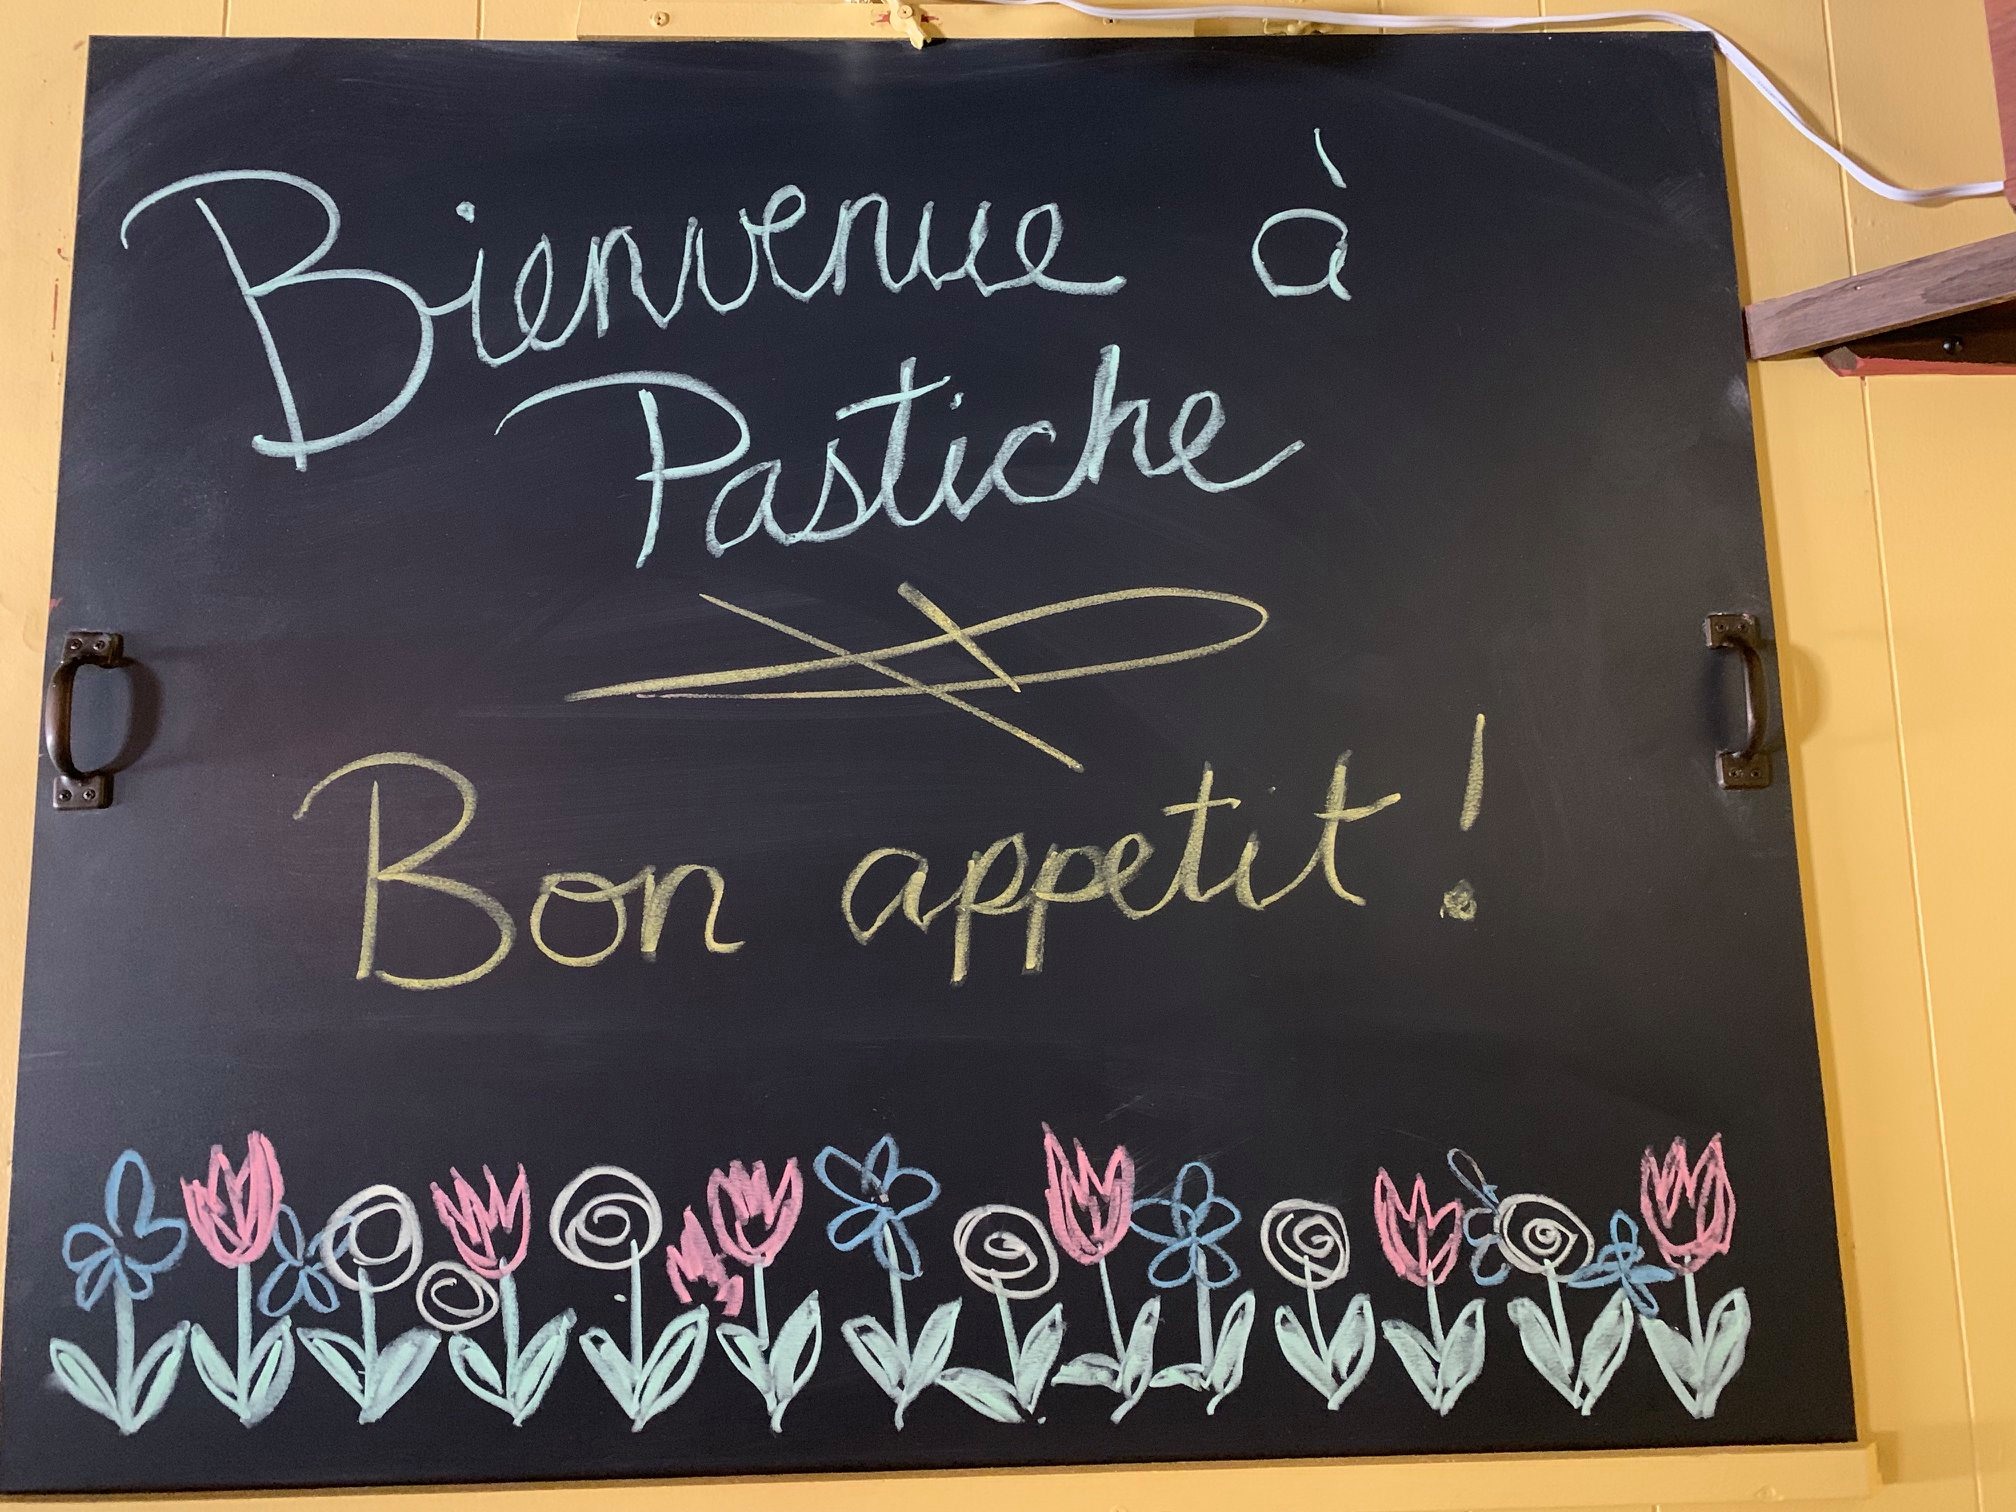 Bienvenue à
Pastiche
Bon appetit!